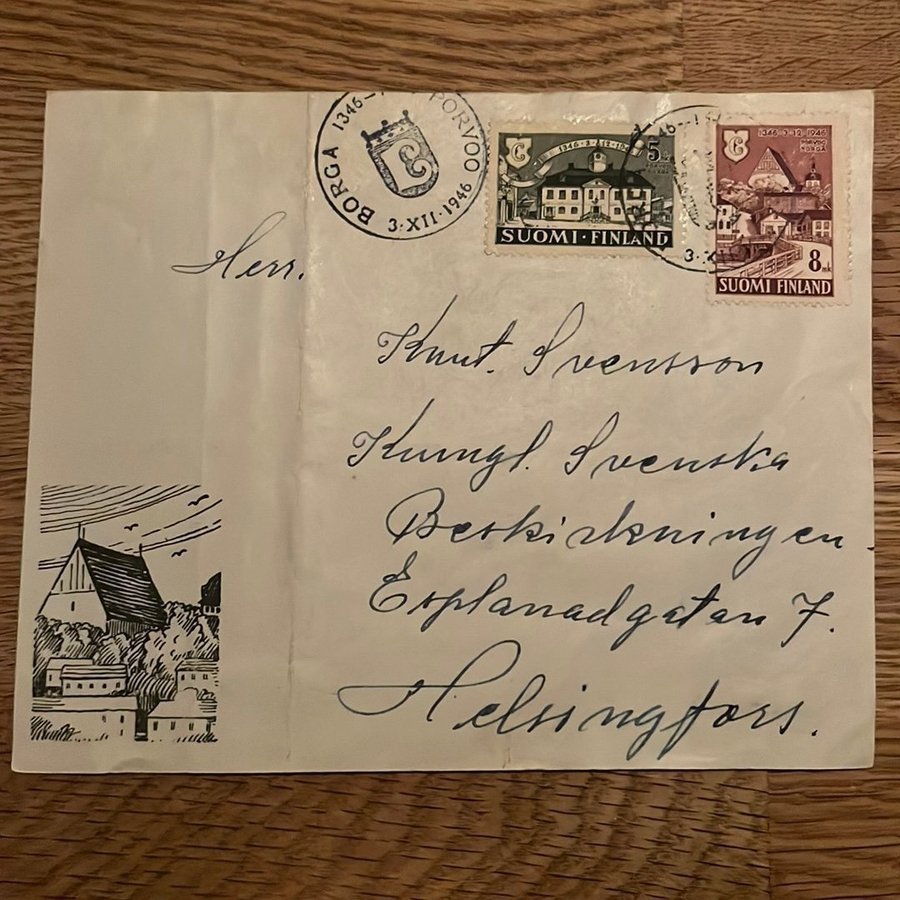 BORGÅ 1346– PORVOO
3·XII·1946
C
1346·3·12·1946
5
SUOMI·FINLAND
3·XII
1346·3·12·1946
PORVOO
BORGÅ
8 mk
SUOMI FINLAND
Herr.
Knut. Svensson
Kungl. Svenska
Beskickningen.
Esplanadgatan 7.
Helsingfors.